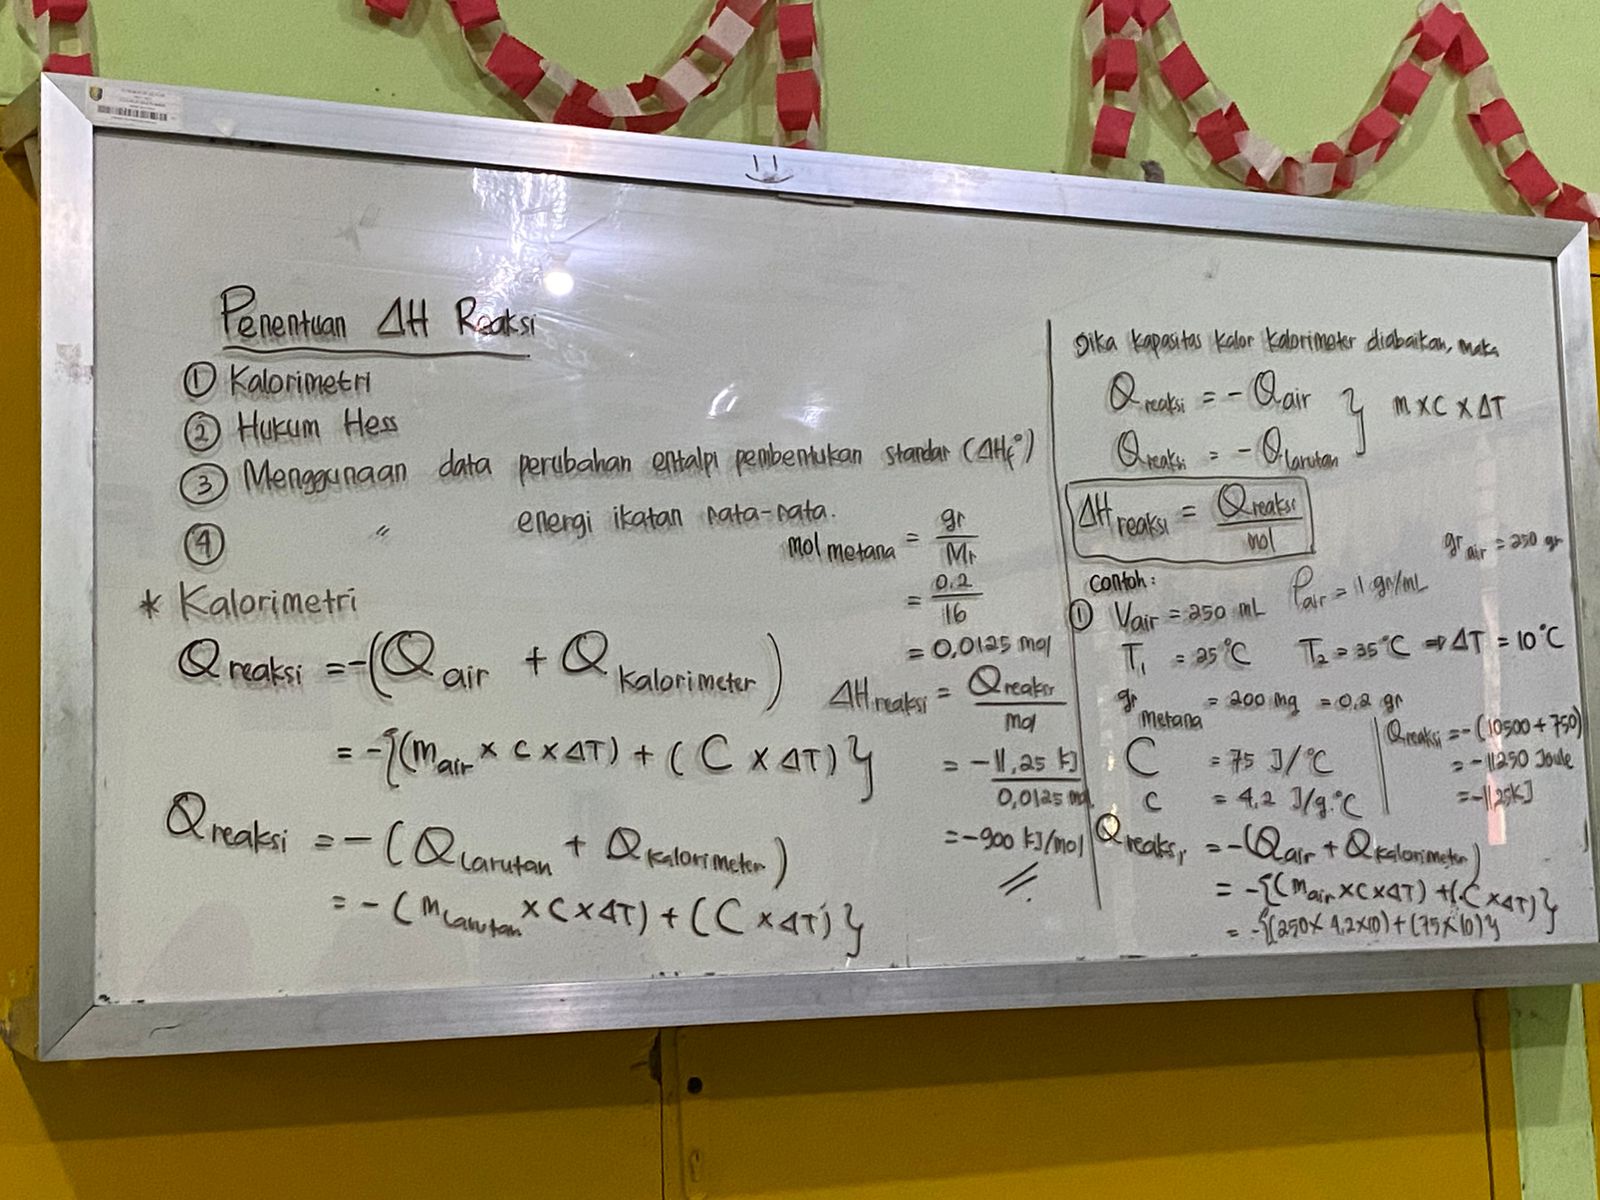 Penentuan ΔH Reaksi
① Kalorimetri
② Hukum Hess
③ Menggunaan data perubahan entalpi pembentukan standar (ΔHf°)
④ " energi ikatan rata-rata.
* Kalorimetri
Q reaksi = -(Q air + Q kalorimeter)
= -{(m air × c × ΔT) + (C × ΔT)}
Q reaksi = -(Q larutan + Q kalorimeter)
= -(m larutan × c × ΔT) + (C × ΔT)}
mol metana = gr/Mr
= 0.2/16
= 0,0125 mol
ΔH reaksi = Q reaksi/mol
= -11,25 kJ/0,0125 mol
= -900 kJ/mol
Jika kapasitas kalor kalorimeter diabaikan, maka
Q reaksi = - Q air } m × c × ΔT
Q reaksi = - Q larutan
ΔH reaksi = Q reaksi/mol
gr air = 250 gr
contoh:
① V air = 250 mL ρ air = 1 gr/mL
T₁ = 25°C T₂ = 35°C ⇒ ΔT = 10°C
gr metana = 200 mg = 0.2 gr
C = 75 J/°C
c = 4,2 J/g.°C
Q reaksi = -(10500 + 750)
= -11250 Joule
= -11,25 kJ
Q reaksi = -(Q air + Q kalorimeter)
= -{(m air × c × ΔT) + (C × ΔT)}
= -{(250 × 4,2 × 10) + (75 × 10)}